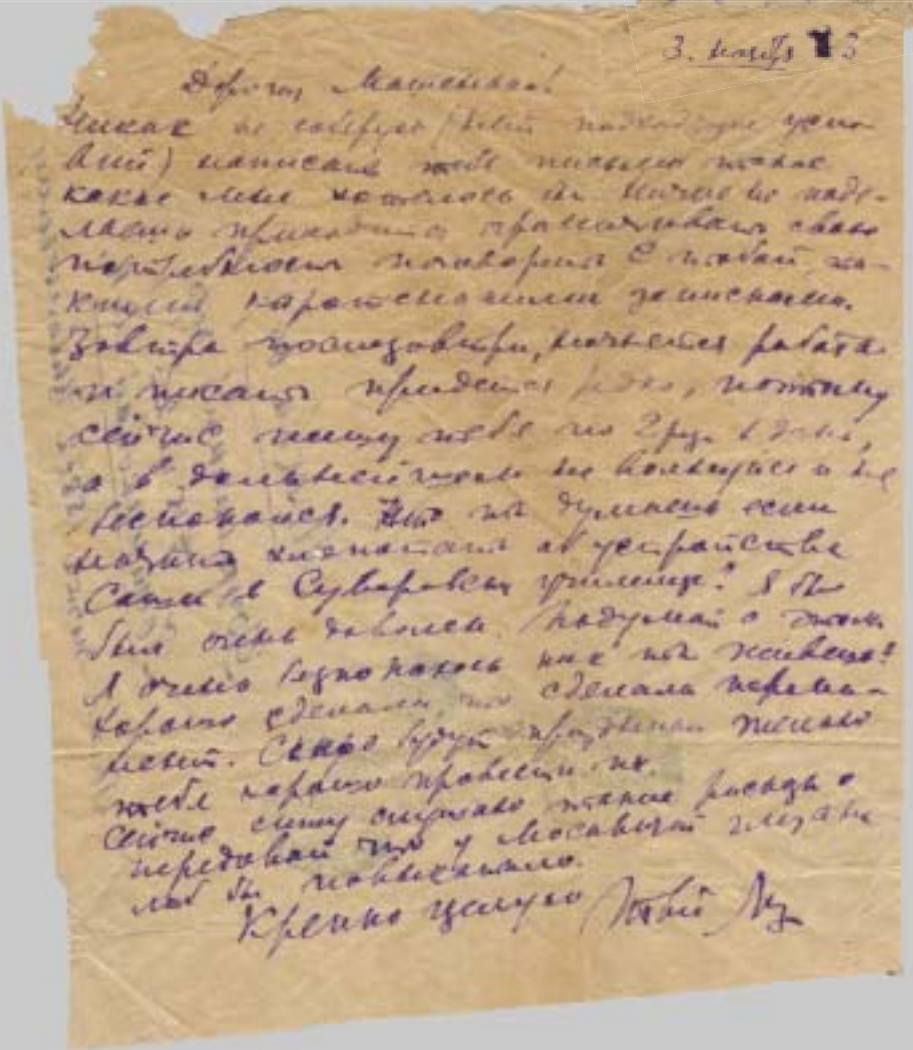 3. ноября 43
Дорогая Машенька!
Никак не соберусь (нет подходящих усло-
вий) написать тебе письмо такое
какое мне хотелось бы. Ничего не поде-
лаешь приходится свою
потребность поговорить с тобой, та-
кими коротенькими записками.
Завтра послезавтра, начнется работа
и писать придется редко, поэтому
сейчас пишу тебе по 2 раза в день,
а в дальнейшем не волнуйся и не
беспокойся. Что ты думаешь если
начать хлопотать об устройстве
Саши в Суворовское училище? Я бы
был очень доволен. Подумай о этом.
Я очень как ты живешь?
Хорошо сделала что сделала
Скоро будут праздники желаю
тебе хорошо провести их.
Сейчас сижу слушаю такие о
передовой что у москвичей глаза на
лоб бы повыскакало.
Крепко целую Твой